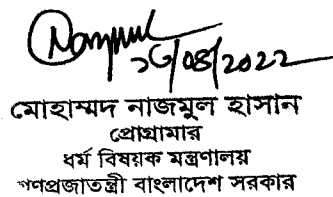 মোহাম্মদ নাজমুল হাসান
প্রোগ্রামার
ধর্ম বিষয়ক মন্ত্রণালয়
গণপ্রজাতন্ত্রী বাংলাদেশ সরকার